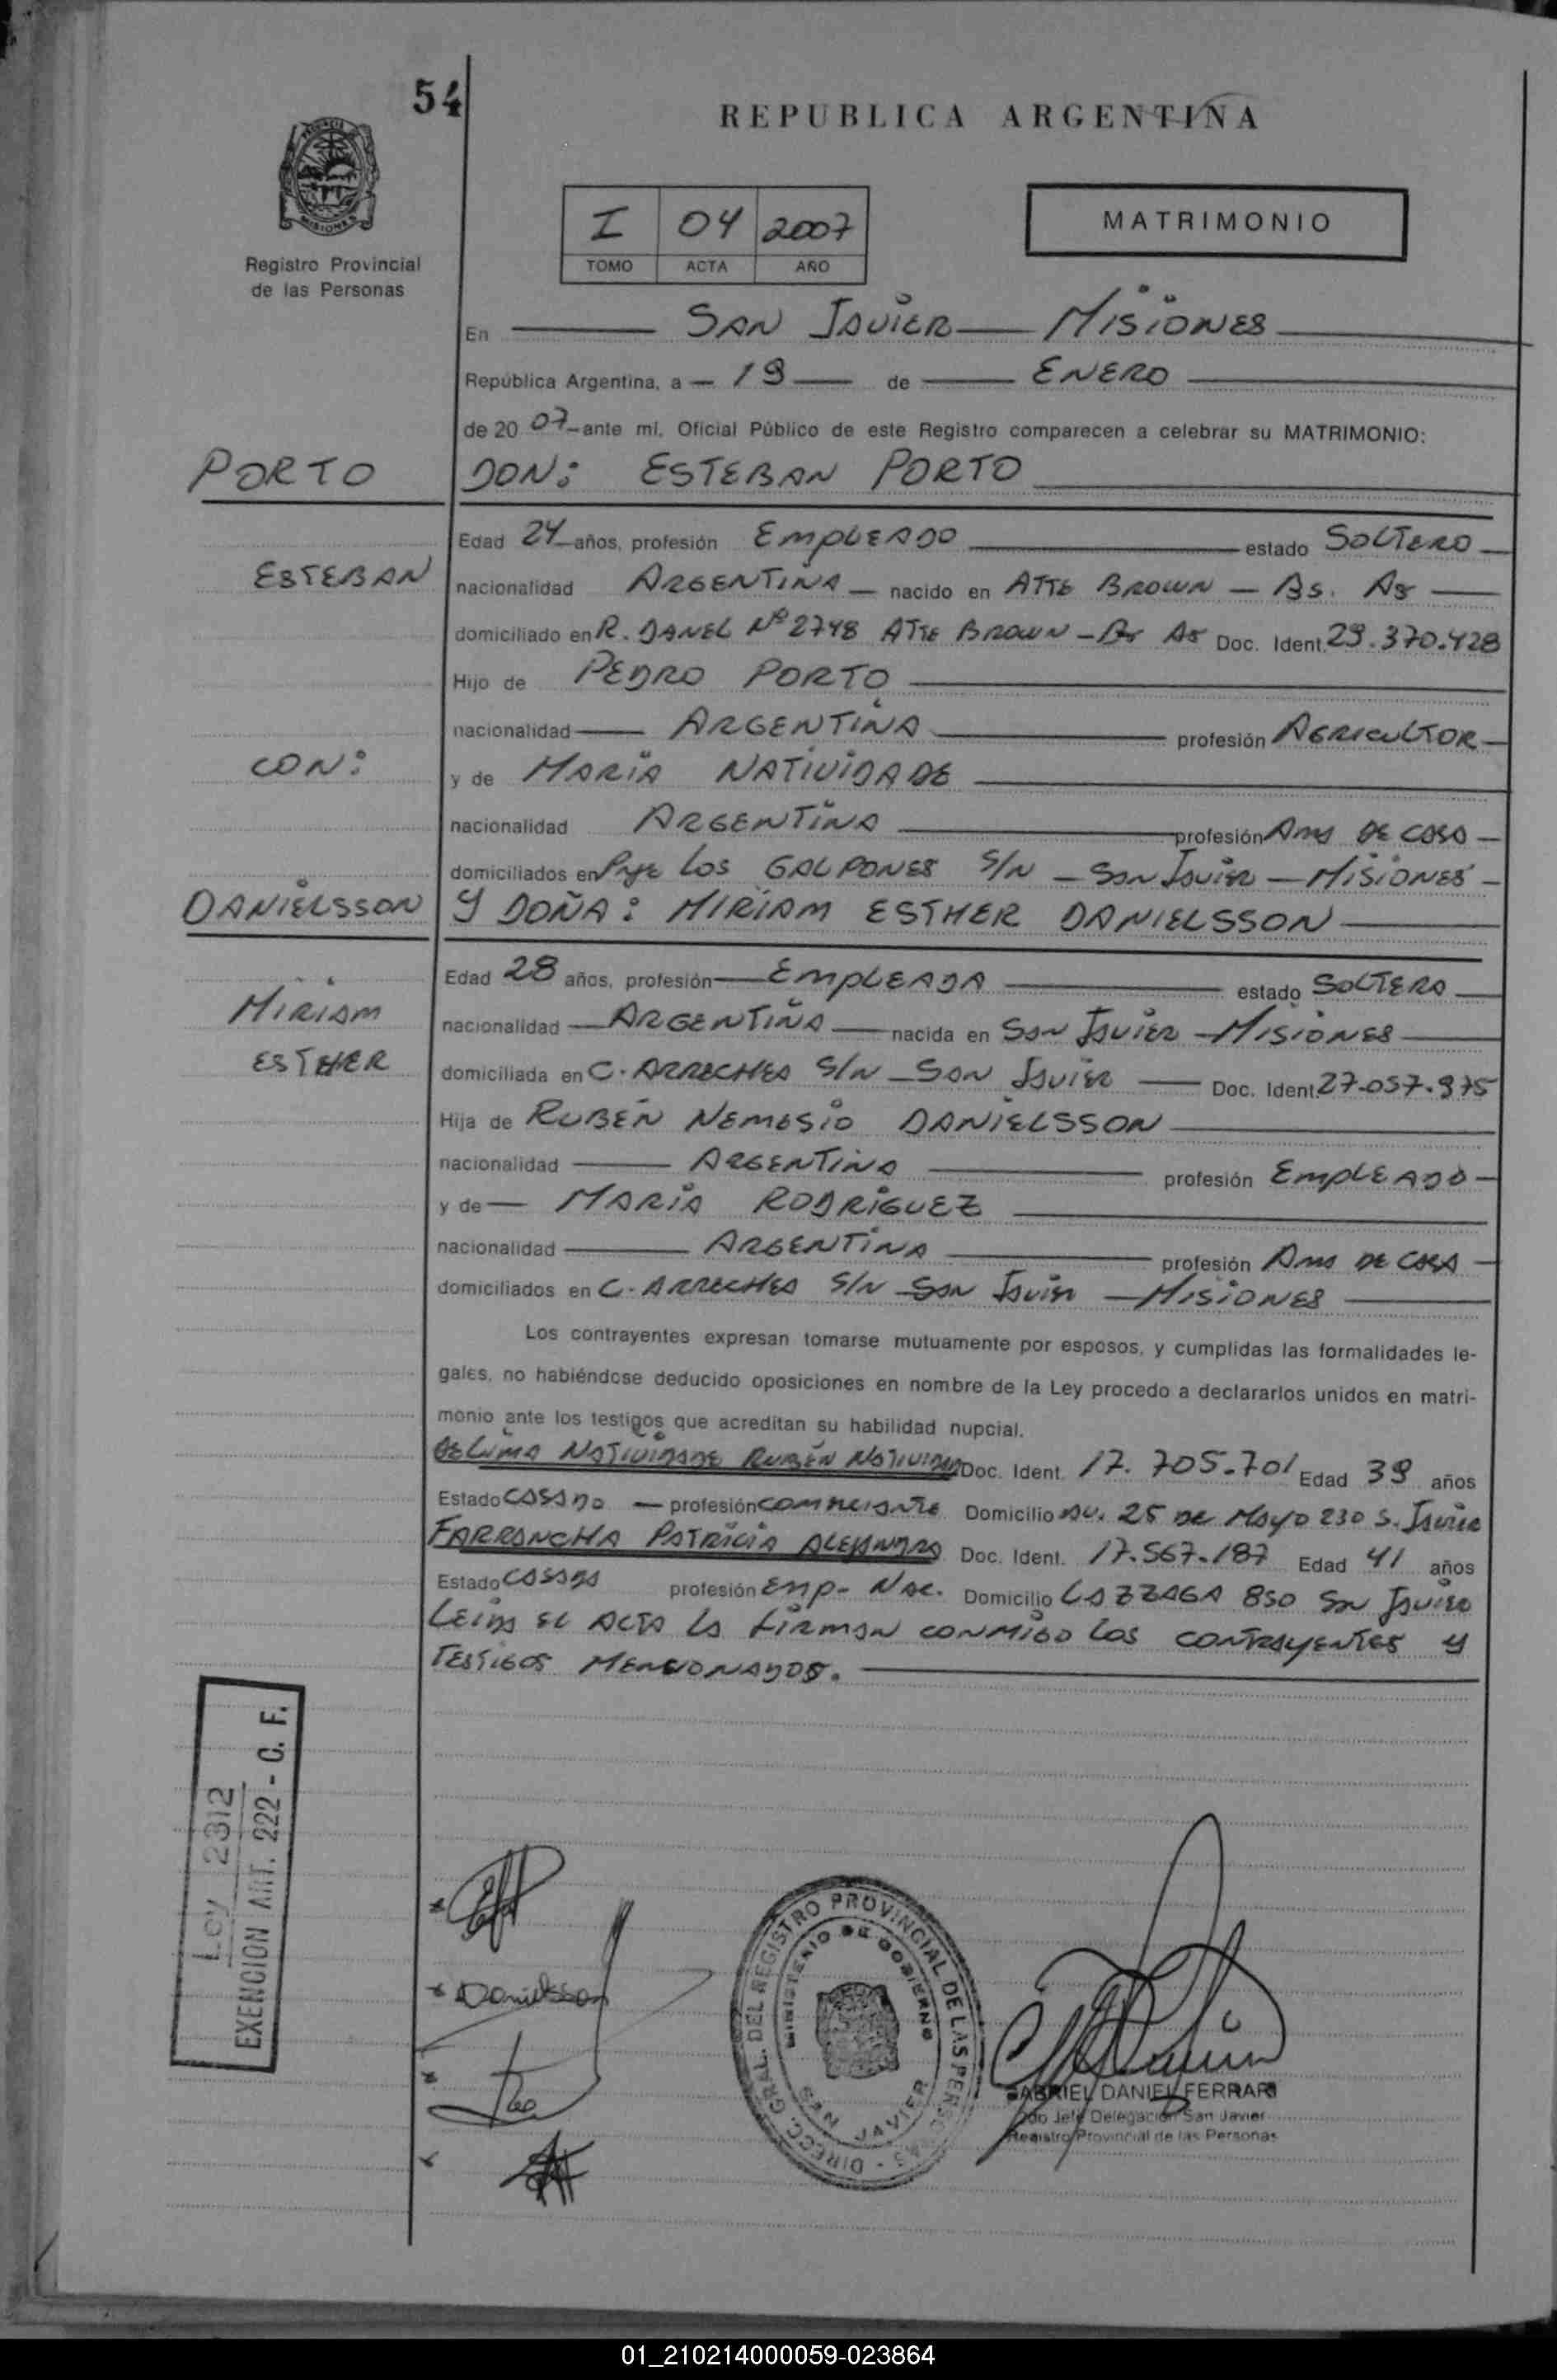 54
REPUBLICA ARGENTINA
MISIONES
Registro Provincial
de las Personas
I 04 2007
TOMO ACTA AÑO
MATRIMONIO
En SAN JAVIER MISIONES
República Argentina, a 19 de ENERO
de 20 07 ante mí, Oficial Público de este Registro comparecen a celebrar su MATRIMONIO:
PORTO DON: ESTEBAN PORTO
Edad 24 años, profesión EMPLEADO estado SOLTERO
ESTEBAN nacionalidad ARGENTINA nacido en ATTE BROWN - Bs. As
domiciliado en R. DANEL Nº 2748 ATTE BROWN - Bs As Doc. Ident. 29.370.428
Hijo de PEDRO PORTO
nacionalidad ARGENTINA profesión AGRICULTOR
CON: y de MARIA NATIVIDADE
nacionalidad ARGENTINA profesión AMA DE CASA
domiciliados en Pje LOS GALPONES S/N - SAN JAVIER - MISIONES
DANIELSSON Y DOÑA: MIRIAM ESTHER DANIELSSON
Edad 28 años, profesión EMPLEADA estado SOLTERA
MIRIAM nacionalidad ARGENTINA nacida en SAN JAVIER - MISIONES
ESTHER domiciliada en C. ARRECHEA S/N - SAN JAVIER Doc. Ident. 27.057.975
Hija de RUBEN NEMESIO DANIELSSON
nacionalidad ARGENTINA profesión EMPLEADO
y de MARIA RODRIGUEZ
nacionalidad ARGENTINA profesión AMA DE CASA
domiciliados en C. ARRECHEA S/N - SAN JAVIER - MISIONES
Los contrayentes expresan tomarse mutuamente por esposos, y cumplidas las formalidades le-
gales, no habiéndose deducido oposiciones en nombre de la Ley procedo a declararlos unidos en matri-
monio ante los testigos que acreditan su habilidad nupcial.
DE LIMA NATIVIDADE RUBEN Doc. Ident. 17.705.701 Edad 39 años
Estado CASADO profesión COMERCIANTE Domicilio AV. 25 DE MAYO 230 S. JAVIER
FARRANCHA PATRICIA ALEJANDRA Doc. Ident. 17.567.187 Edad 41 años
Estado CASADA profesión EMP. NAC. Domicilio LAZZAGA 850 SAN JAVIER
LEIDA EL ACTA LA FIRMAN CONMIGO LOS CONTRAYENTES Y
TESTIGOS MENCIONADOS.
Ley 2312
EXENCION ART. 222 - C. F.
Danielsson
DIRECC. GRAL. DEL REGISTRO PROVINCIAL DE LAS PERSONAS
MINISTERIO DE GOBIERNO
SAN JAVIER
GABRIEL DANIEL FERRARI
2do Jefe Delegación San Javier
Registro Provincial de las Personas
01_210214000059-023864